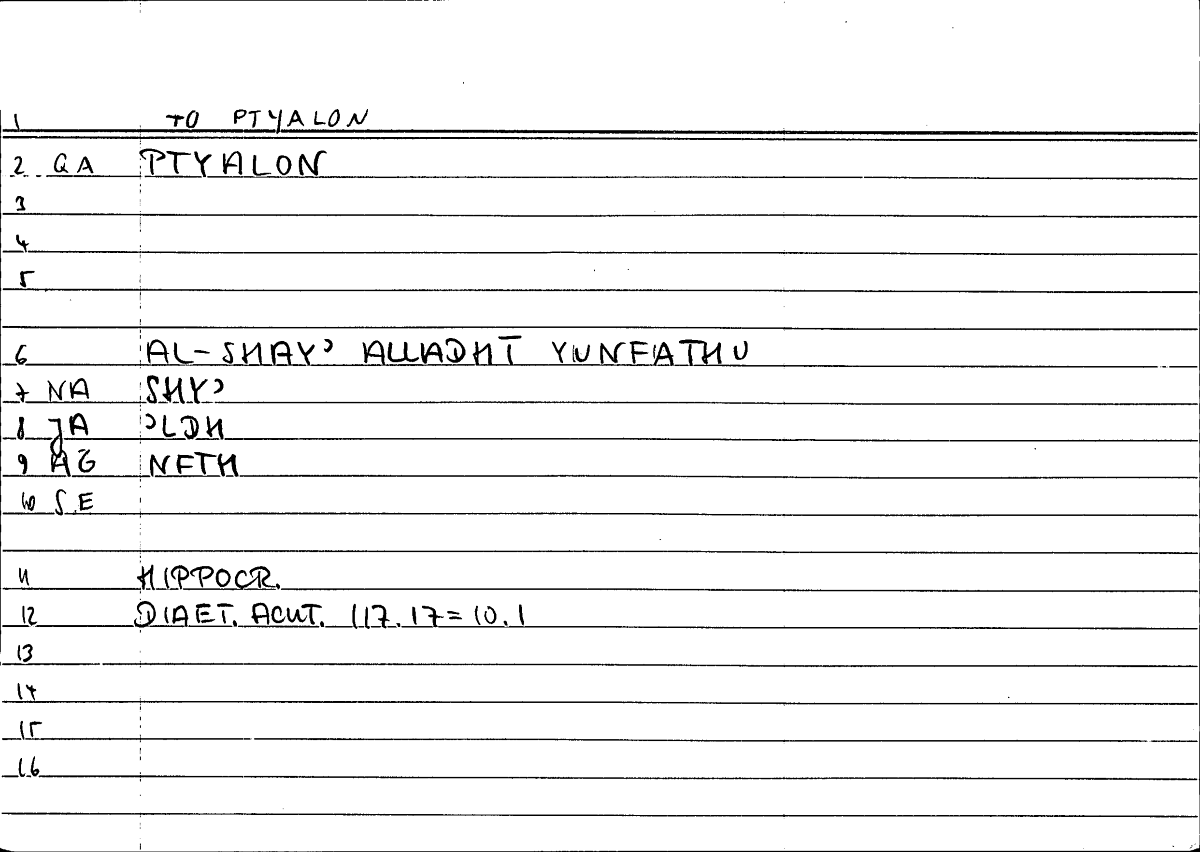 1 TO PTYALON
2 QA PTYALON
3
4
5
6 AL-SHAY' ALLADHĪ YUNFATHU
7 NA SHY'
8 JA 'LDH
9 AG NFTH
10 SE
11 HIPPOCR.
12 DIAET. ACUT. 117.17=10.1
13
14
15
16